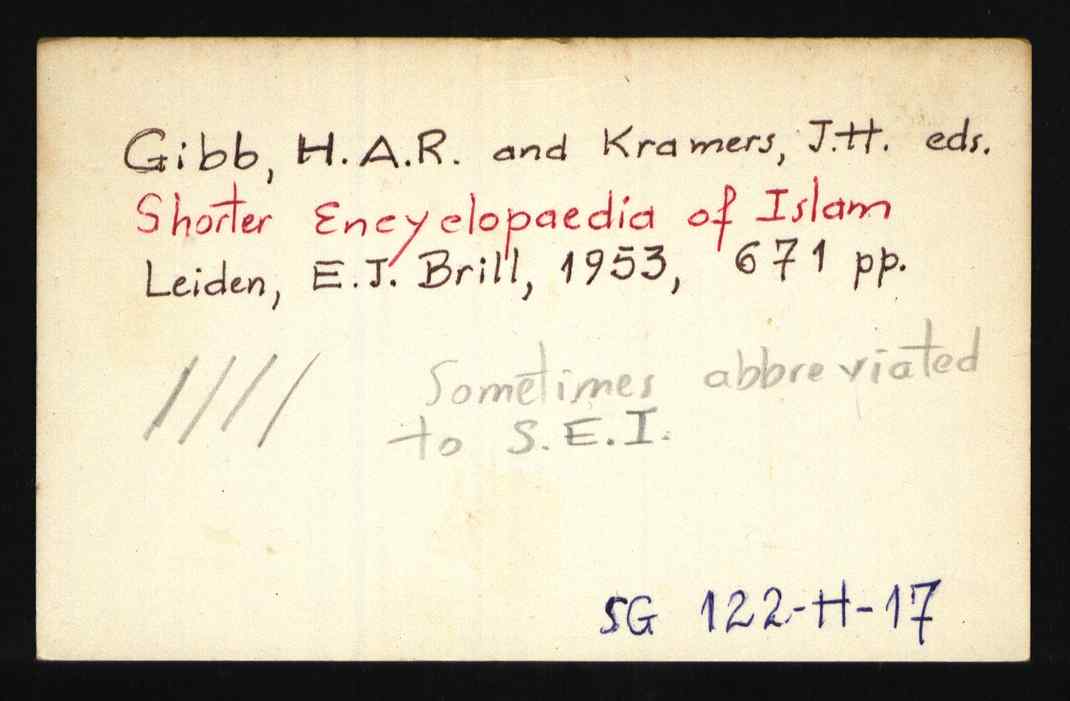 Gibb, H.A.R. and Kramers, J.H. eds.
Shorter Encyclopaedia of Islam
Leiden, E.J. Brill, 1953, 671 pp.
//// Sometimes abbreviated
to S.E.I.
SG 122-H-17